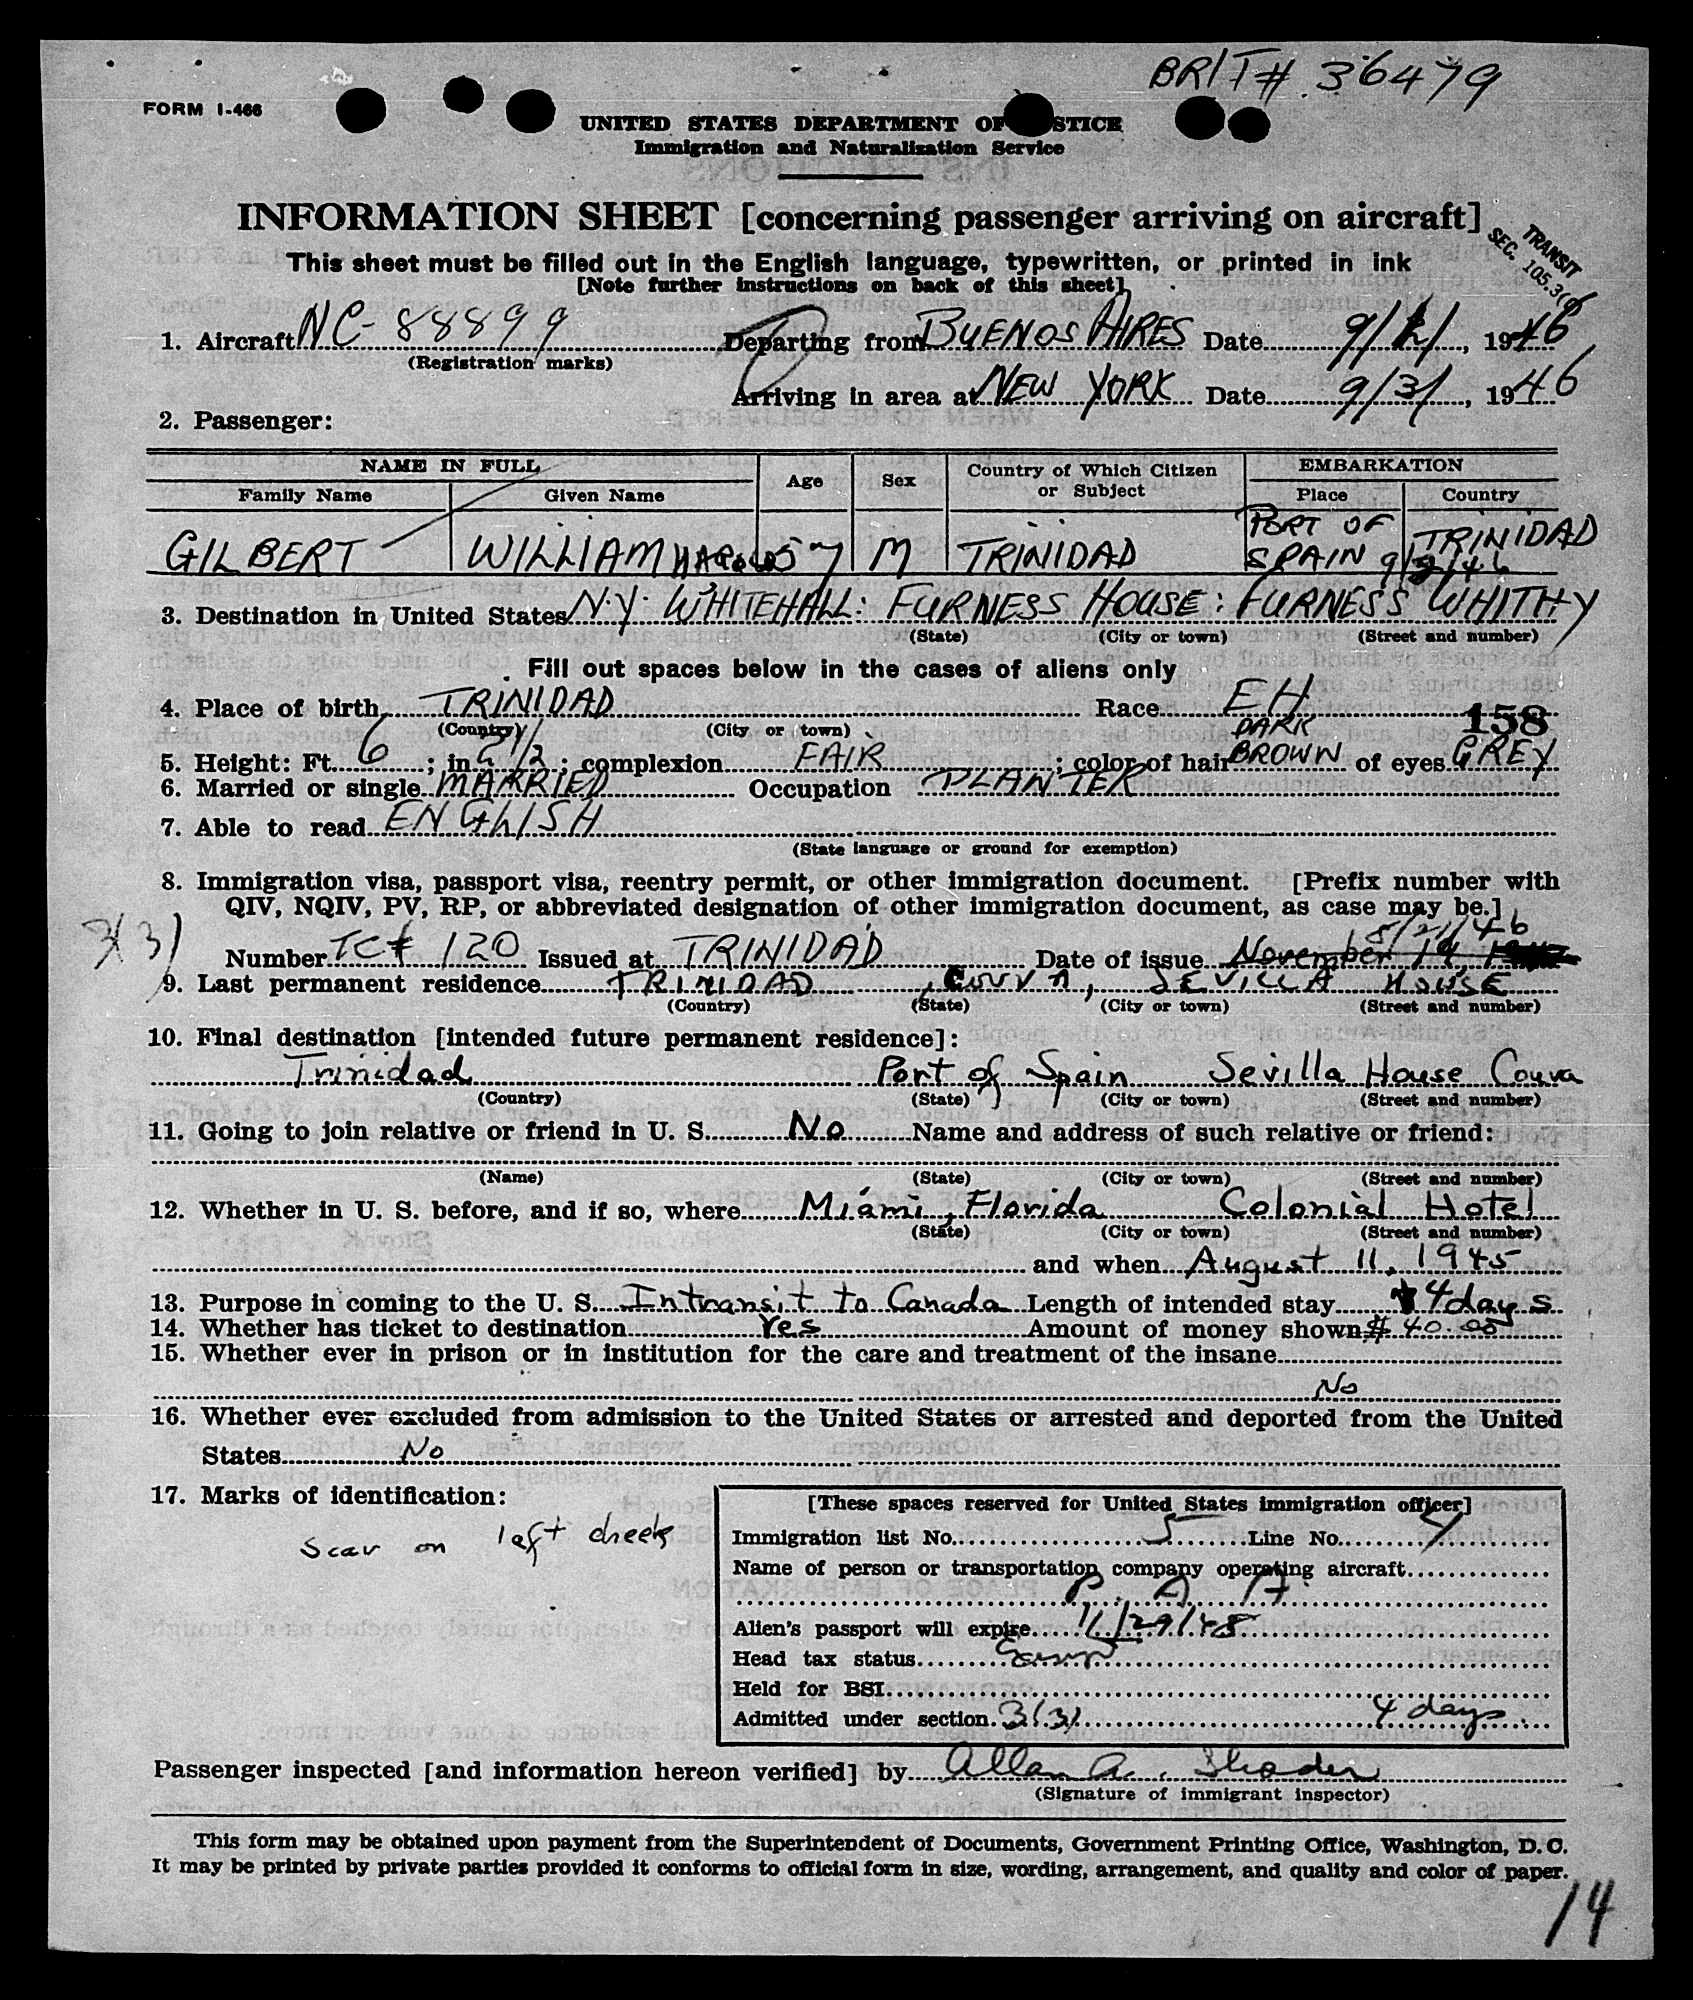 BRIT# 36479
FORM I-466
UNITED STATES DEPARTMENT OF STICE
Immigration and Naturalization Service
INFORMATION SHEET [concerning passenger arriving on aircraft]
TRANSIT
SEC. 105.3(
This sheet must be filled out in the English language, typewritten, or printed in ink
[Note further instructions on back of this sheet]
1. Aircraft NC-88899 Departing from BUENOS AIRES Date 9/ / , 1946
(Registration marks)
Arriving in area at NEW YORK Date 9/3/, 1946
2. Passenger:
NAME IN FULL Age Sex Country of Which Citizen or Subject EMBARKATION
Family Name Given Name Place Country
GILBERT WILLIAM HAROLD 57 M TRINIDAD PORT OF SPAIN TRINIDAD
9/2/46
3. Destination in United States N.Y. WHITEHALL: FURNESS HOUSE: FURNESS WHITHY
(State) (City or town) (Street and number)
Fill out spaces below in the cases of aliens only
4. Place of birth TRINIDAD Race EH
(Country) (City or town)
158
5. Height: Ft. 6; in. 2 1/2; complexion FAIR; color of hair DARK BROWN of eyes GREY
6. Married or single MARRIED Occupation PLANTER
7. Able to read ENGLISH
(State language or ground for exemption)
8. Immigration visa, passport visa, reentry permit, or other immigration document. [Prefix number with
QIV, NQIV, PV, RP, or abbreviated designation of other immigration document, as case may be.]
3(3)
8/21/46
Number TC# 120 Issued at TRINIDAD Date of issue November 19,
9. Last permanent residence TRINIDAD, COUVA, SEVILLA HOUSE
(Country) (State) (City or town) (Street and number)
10. Final destination [intended future permanent residence]:
Trinidad Port of Spain Sevilla House Couva
(Country) (State) (City or town) (Street and number)
11. Going to join relative or friend in U. S. No Name and address of such relative or friend:
(Name) (State) (City or town) (Street and number)
12. Whether in U. S. before, and if so, where Miami, Florida Colonial Hotel
(State) (City or town) (Street and number)
and when August 11, 1945
13. Purpose in coming to the U. S. Intransit to Canada Length of intended stay 4 days
14. Whether has ticket to destination Yes Amount of money shown $ 40.00
15. Whether ever in prison or in institution for the care and treatment of the insane
No
16. Whether ever excluded from admission to the United States or arrested and deported from the United
States No
17. Marks of identification:
Scar on left cheek
[These spaces reserved for United States immigration officer]
Immigration list No. 5 Line No. 4
Name of person or transportation company operating aircraft
P. A. A.
Alien's passport will expire 11/29/48
Head tax status
Held for BSI
Admitted under section 3(3) 4 days
Passenger inspected [and information hereon verified] by Allan A.
(Signature of immigrant inspector)
This form may be obtained upon payment from the Superintendent of Documents, Government Printing Office, Washington, D. C.
It may be printed by private parties provided it conforms to official form in size, wording, arrangement, and quality and color of paper.
14